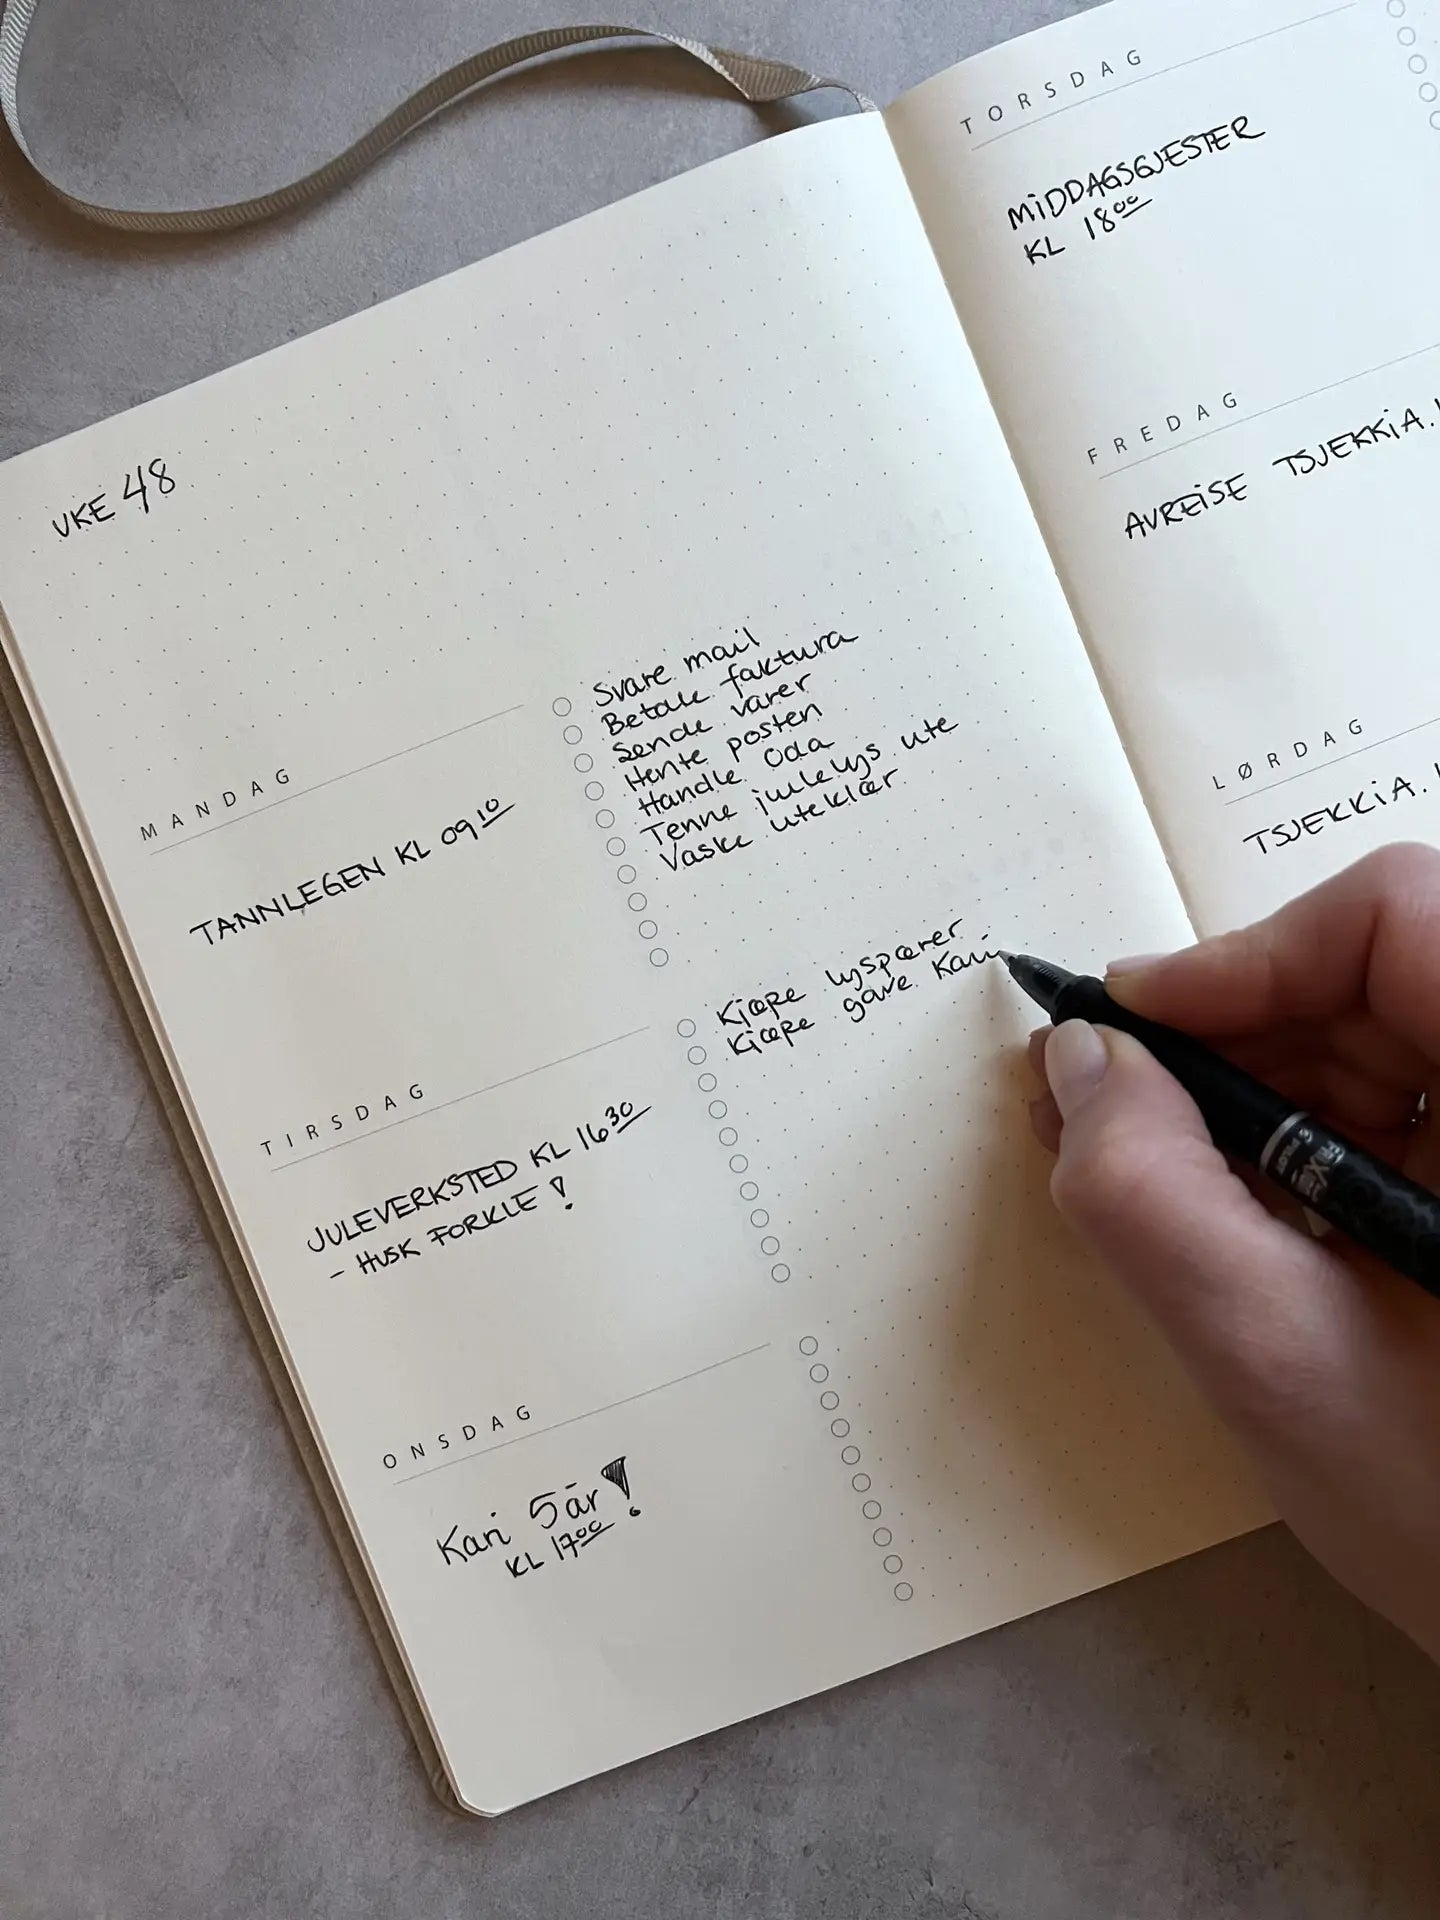 VKE 48
MANDAG
TANNLEGEN KL 09 10
Svare mail
Betale faktura
Sende varer
Hente posten
Handle Oda
Tenne julelys ute
Vaske uteklær
TIRSDAG
JULEVERKSTED KL 16 30
- HUSK FORKLE!
Kjøpe lyspærer
Kjøpe gave Kari
ONSDAG
Kari 5 år!
KL 17 00
TORSDAG
MIDDAGSGJESTER
KL 18 00
FREDAG
AVREISE TSJEKKIA.
LØRDAG
TSJEKKIA.
FRiXion
PILOT